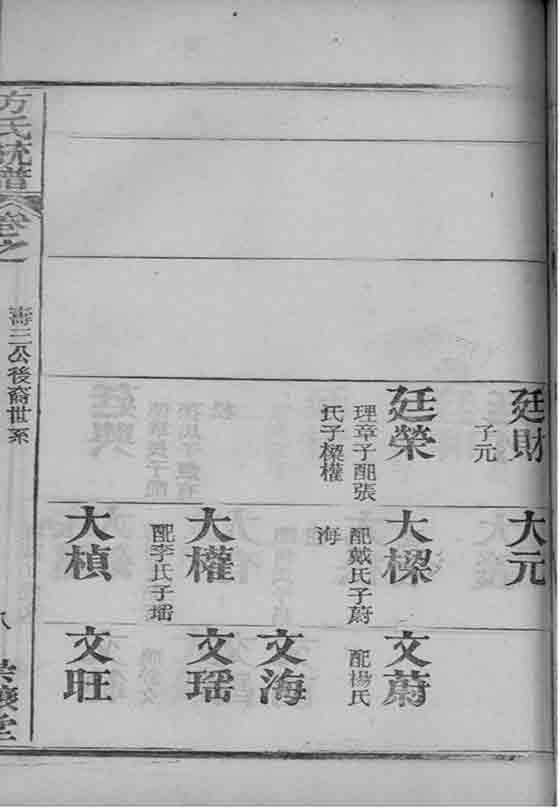 廷財
子元
廷榮
理章子配張
氏子樑權
大元
大樑
配戴氏子蔚
海
大權
配李氏子瑶
大楨
文蔚
配楊氏
文海
文瑶
文旺
方氏統譜
卷之
壽三公後裔世系
八
義堂